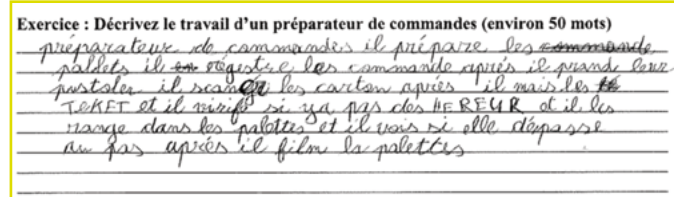 Exercice : Décrivez le travail d'un préparateur de commandes (environ 50 mots)
préparateur de commandes il prépare les commande
pallets il en régestre les commande aprés il prand leur
pustoler il scaner les carton apriés il mais les
TekeT et il virifi si ya pas des HEREUR et il les
range dans les palettes et il vois si elle dépasse
au pas apriés il film la palettes